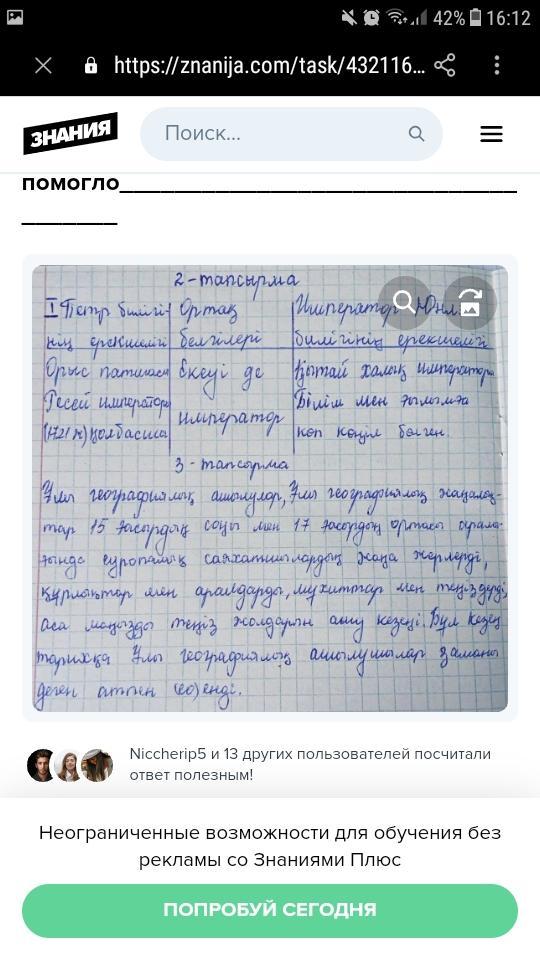 42% 16:12
https://znanija.com/task/432116...
ЗНАНИЯ
Поиск...
ПОМОГЛО______________________________
_______
2-тапсырма
I Петр билігі Ортақ Император
нің ерекшелігі белгілері билігінің ерекшелігі
Орыс патшасы Екеуі де Қытай халық императоры
Ресей императоры император Білім мен ғылымға
(1721 ж) қолбасшы көп көңіл бөлген.
3-тапсырма
Ұлы географиялық ашылулар, Ұлы географиялық жаңалық-
тар 15 ғасырдың соңы мен 17 ғасырдың ортасы арала-
ғында еуропалық саяхатшылардың жаңа жерлерді,
құрлықтар мен аралдарды, мұхиттар мен теңіздерді,
аса маңызды теңіз жолдарын ашу кезеңі. Бұл кезең
тарихқа Ұлы географиялық ашылушылар заманы
деген атпен енді.
Niccherip5 и 13 других пользователей посчитали
ответ полезным!
Неограниченные возможности для обучения без
рекламы со Знаниями Плюс
ПОПРОБУЙ СЕГОДНЯ